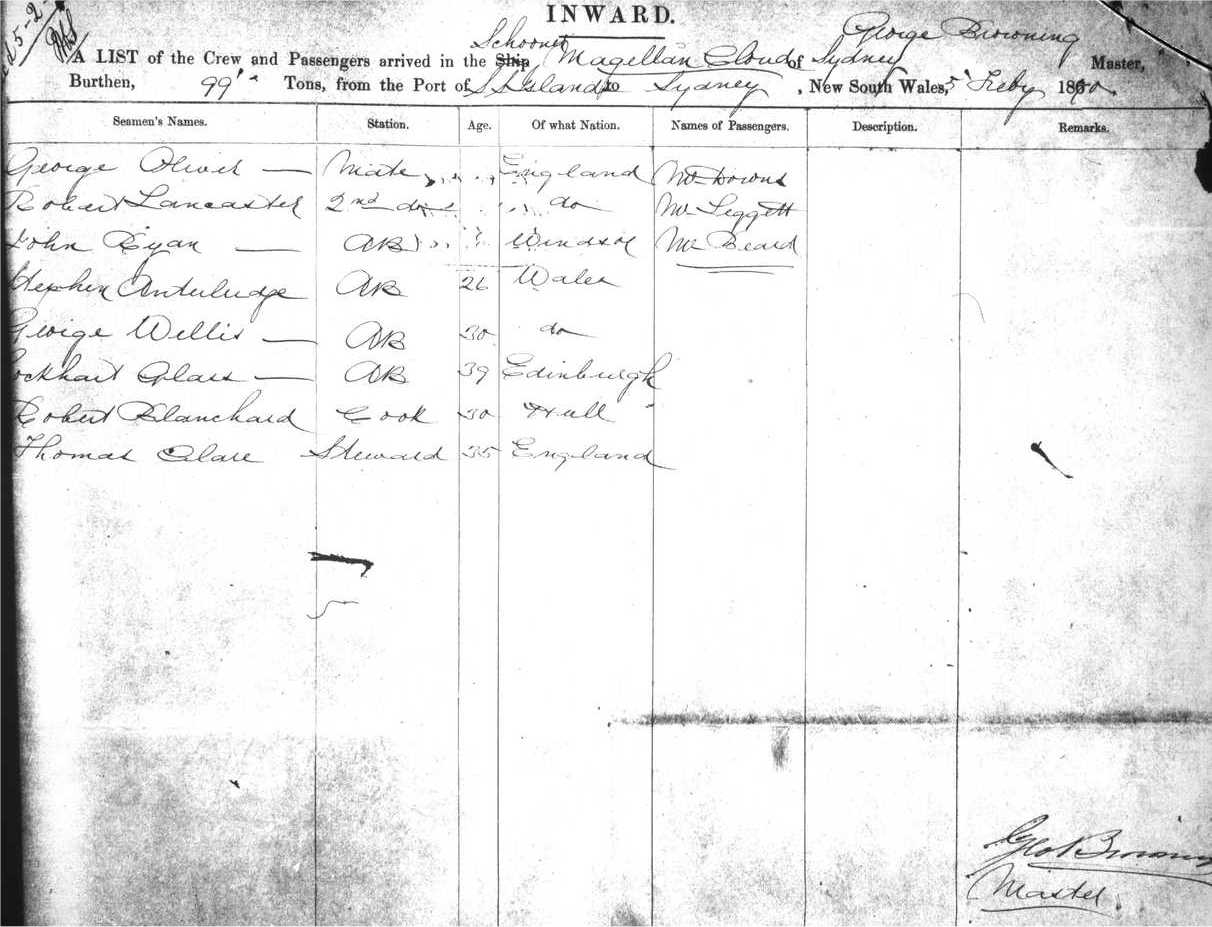 5-2-
INWARD.
George Browning
Schooner
A LIST of the Crew and Passengers arrived in the Ship Magellan Cloud of Sydney Master,
Burthen, 99 Tons, from the Port of S S Islands to Sydney, New South Wales, 5 Feby 18
Seamen's Names. Station. Age. Of what Nation. Names of Passengers. Description. Remarks.
George Oliver — Mate England Mr Downs
Robert Lancaster 2nd do do Mr Leggett
John Ryan — AB Windsor Mr Beard
Stephen AB 26 Wales
George Willis — AB 30 do
Lockhart Glass — AB 39 Edinburgh
Robert Blanchard Cook 30 Hull
Thomas Clare Steward 35 England
Geo Browning
Master